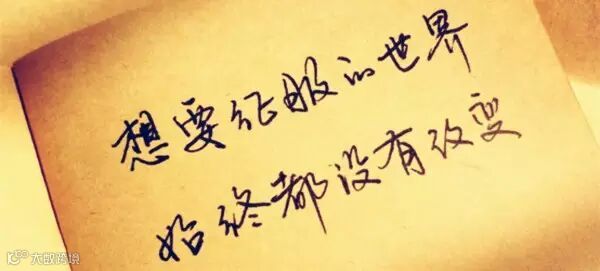 想要征服的世界
始终都没有改变
大数跨境